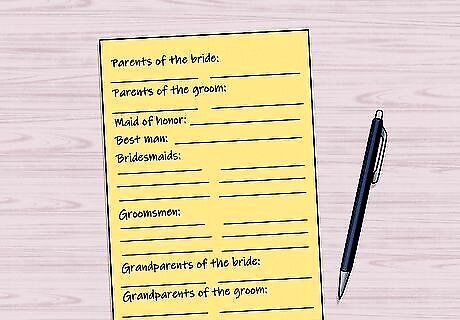 Parents of the bride:
Parents of the groom:
Maid of honor:
Best man:
Bridesmaids:
Groomsmen:
Grandparents of the bride:
Grandparents of the groom: